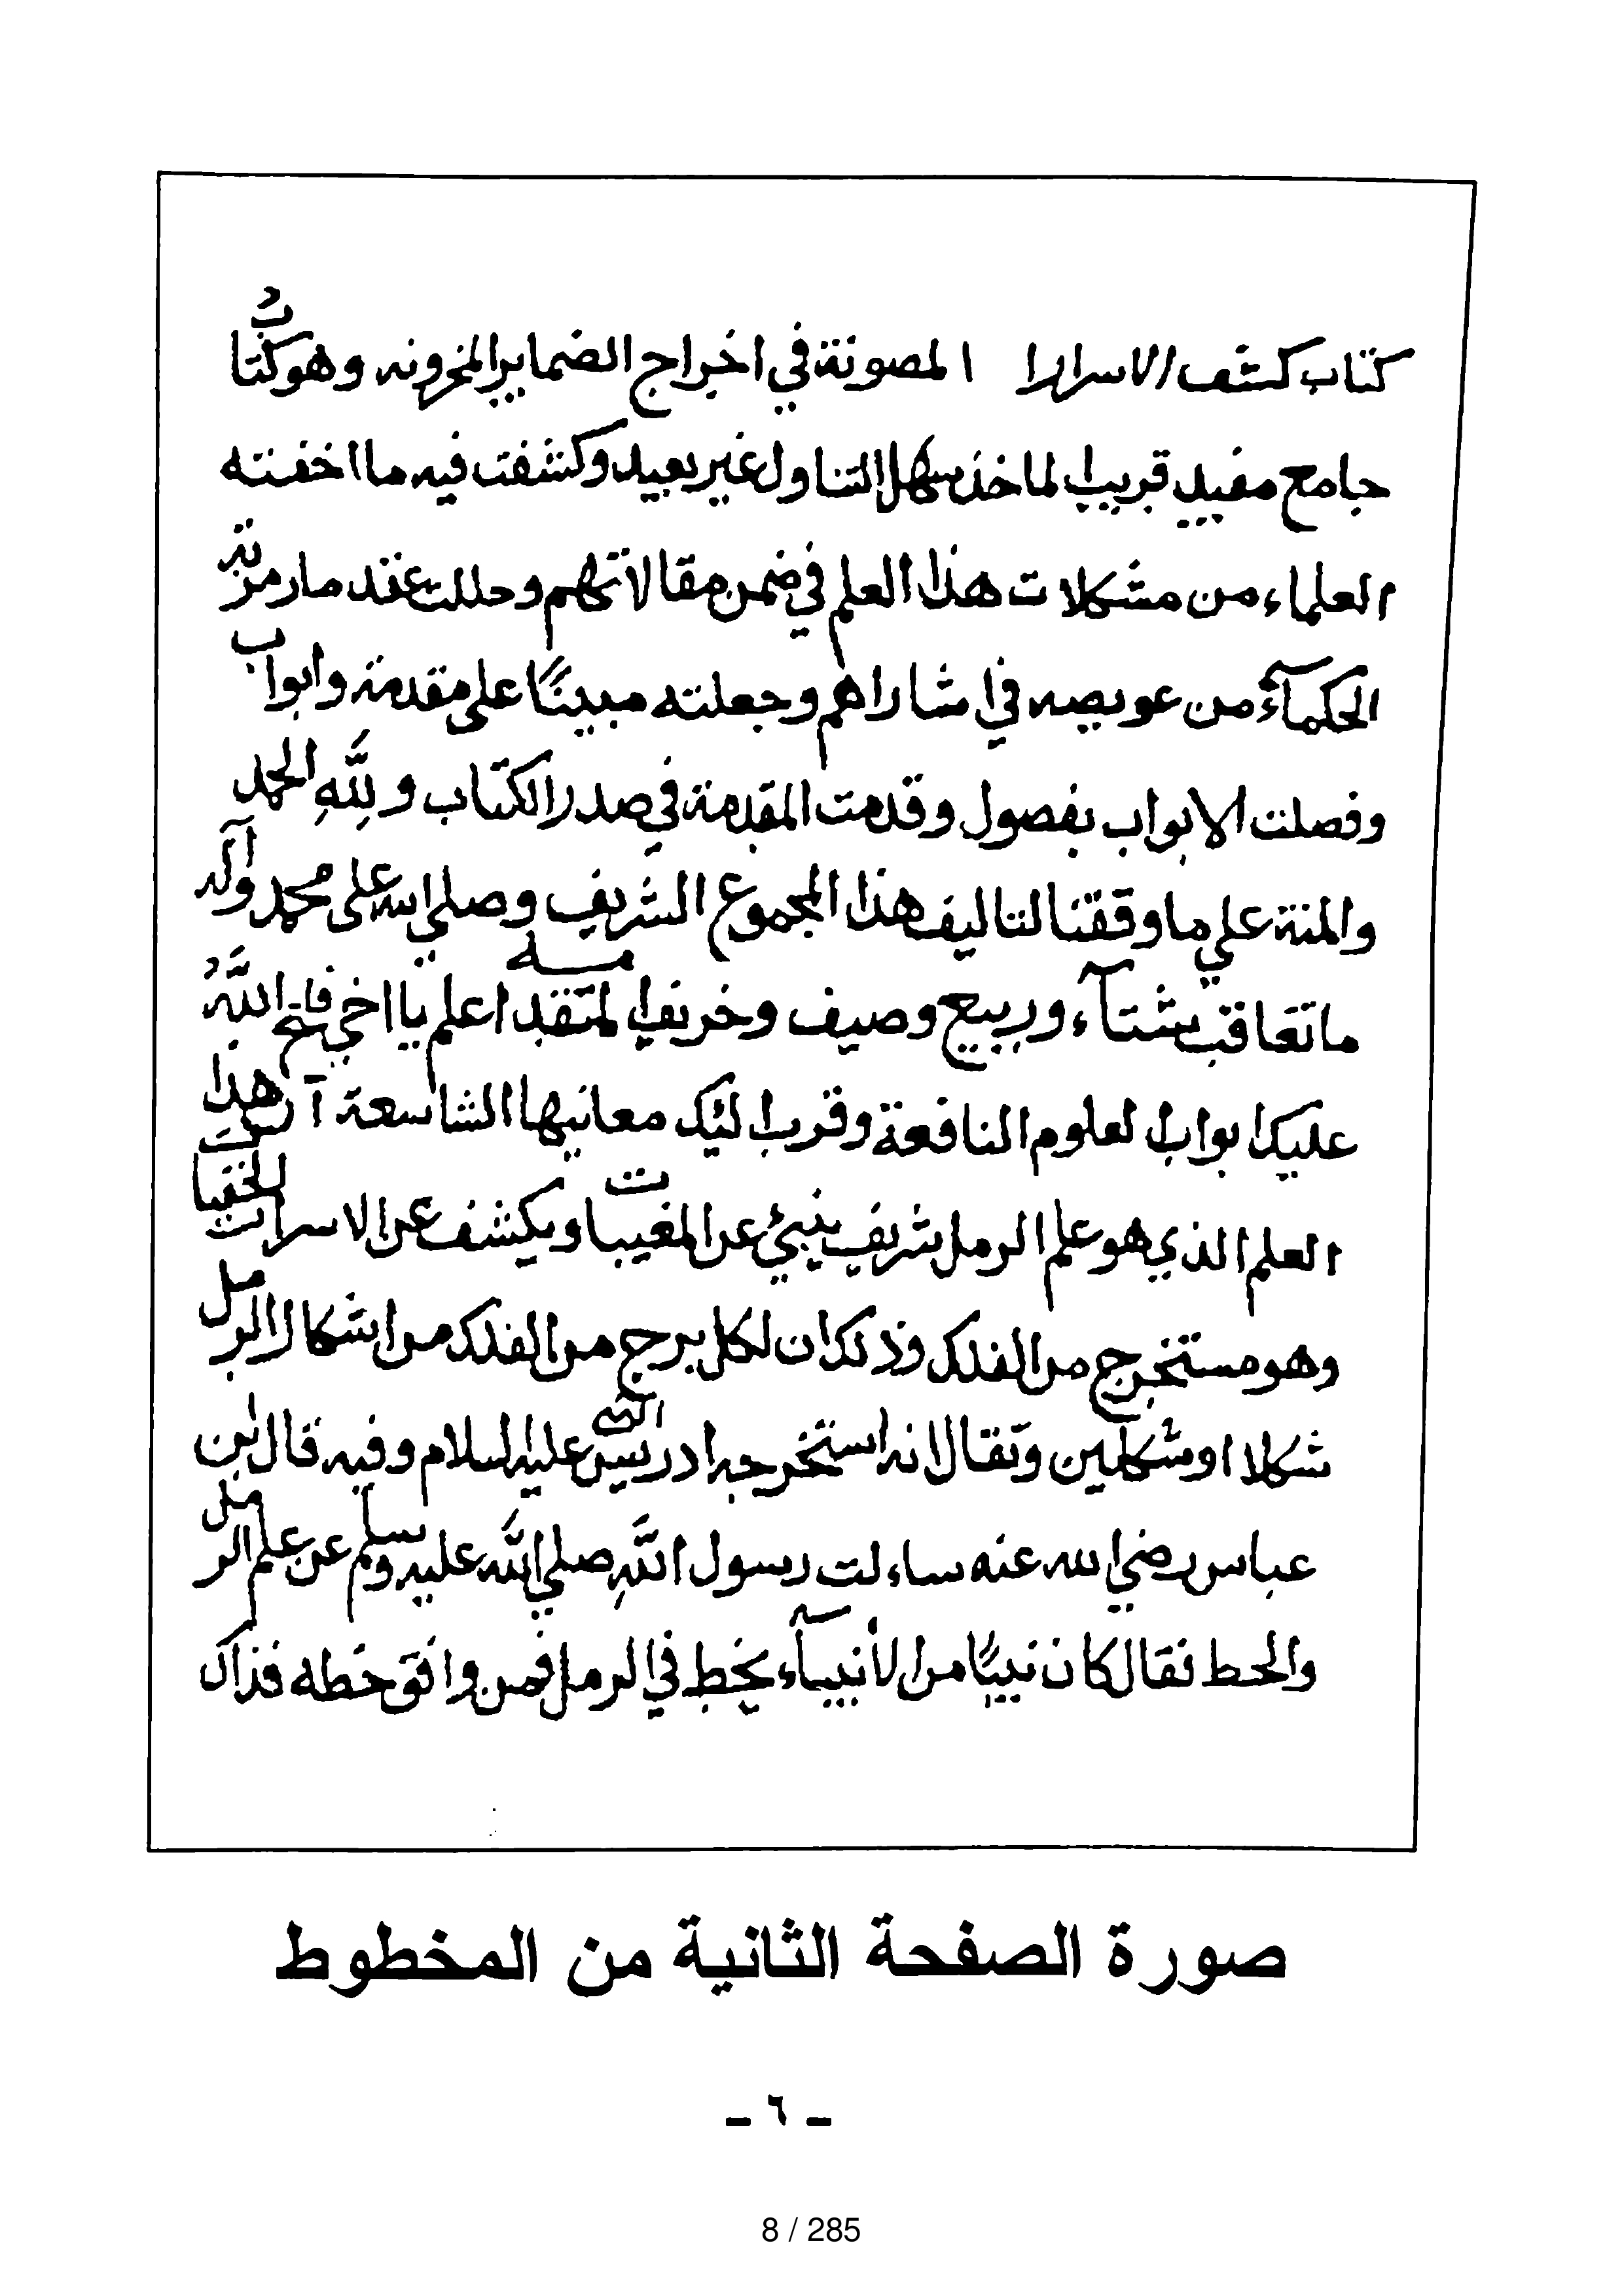 كتاب كشف الاسرار ا المصونة في اخراج الضماير المخزونه وهو كتابٌ
جامع مفيد قريب الماخذ سهل التناول غير بعيد وكشفت فيه ما اخفته
العلماء من مشكلات هذا العلم في ضمن مقالاتهم وحللت عقد ما رمزته
الحكمآء من عويصه في اشاراهم وجعلته مبينًا على مقدمة وابواب
وفصلت الابواب بفصول وقدمت المقدمة في صدر الكتاب وللّهِ الحمد
والمنة علي ما وفقنا لتاليف هذا المجموع الشريف وصلي الله على محمد وآله
ما تعاقب شتآء وربيع وصيف وخريف المقدمه اعلم يا اخي فتح اللّهُ
عليك ابواب العلوم النافعة وقرب اليك معانيها الشاسعة آن هذا
العلم الذي هو علم الرمل شريف ينبئ عن المغيبات ويكشف عن الاسرار الخفيات
وهو مستخرج من الفلك وذلك ان لكل برج من الفلك من اشكال الرمل
شكلا او شكلين ويقال انه استخرجه ادريس النبي عليه السلام وفيه قال بن
عباس رضي الله عنه ساءلت رسول اللّهِ صلي اللّه عليه وسلم عن علم الرمل
والخط فقال كان نبيًا من الأنبيآء يخط في الرمل فمن وافق خطه فذاك
صورة الصفحة الثانية من المخطوط
- ٦ -
8 / 285